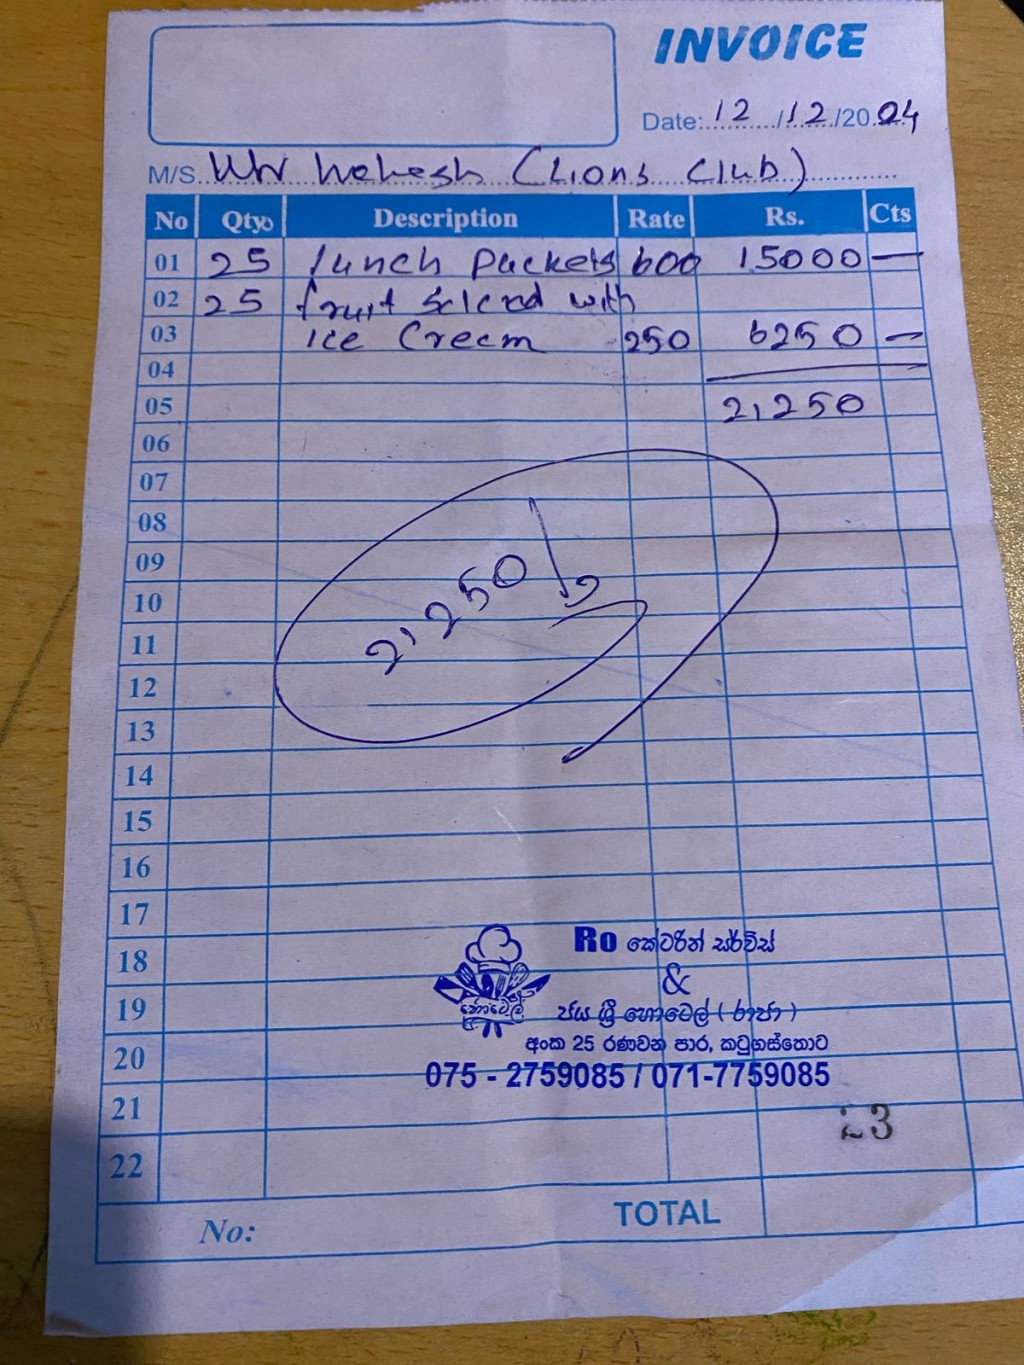 INVOICE
Date: 12/12/2024
M/S (Lions Club)
No Qty Description Rate Rs. Cts
01 25 lunch Packets 600 15000 —
02 25 fruit Selerd with
03 ice Creem 250 6250 —
04
05 21250
06
07
08
09
10
11
12
13
14
15
16
17
18
19
20
21
22
21250/=
Ro කේටරින් සර්විස්
&
හොටෙල්
ජය ශ්‍රී හොටෙල් ( රාජා )
අංක 25 රණවන පාර, කටුගස්තොට
075 - 2759085 / 071-7759085
23
No: TOTAL